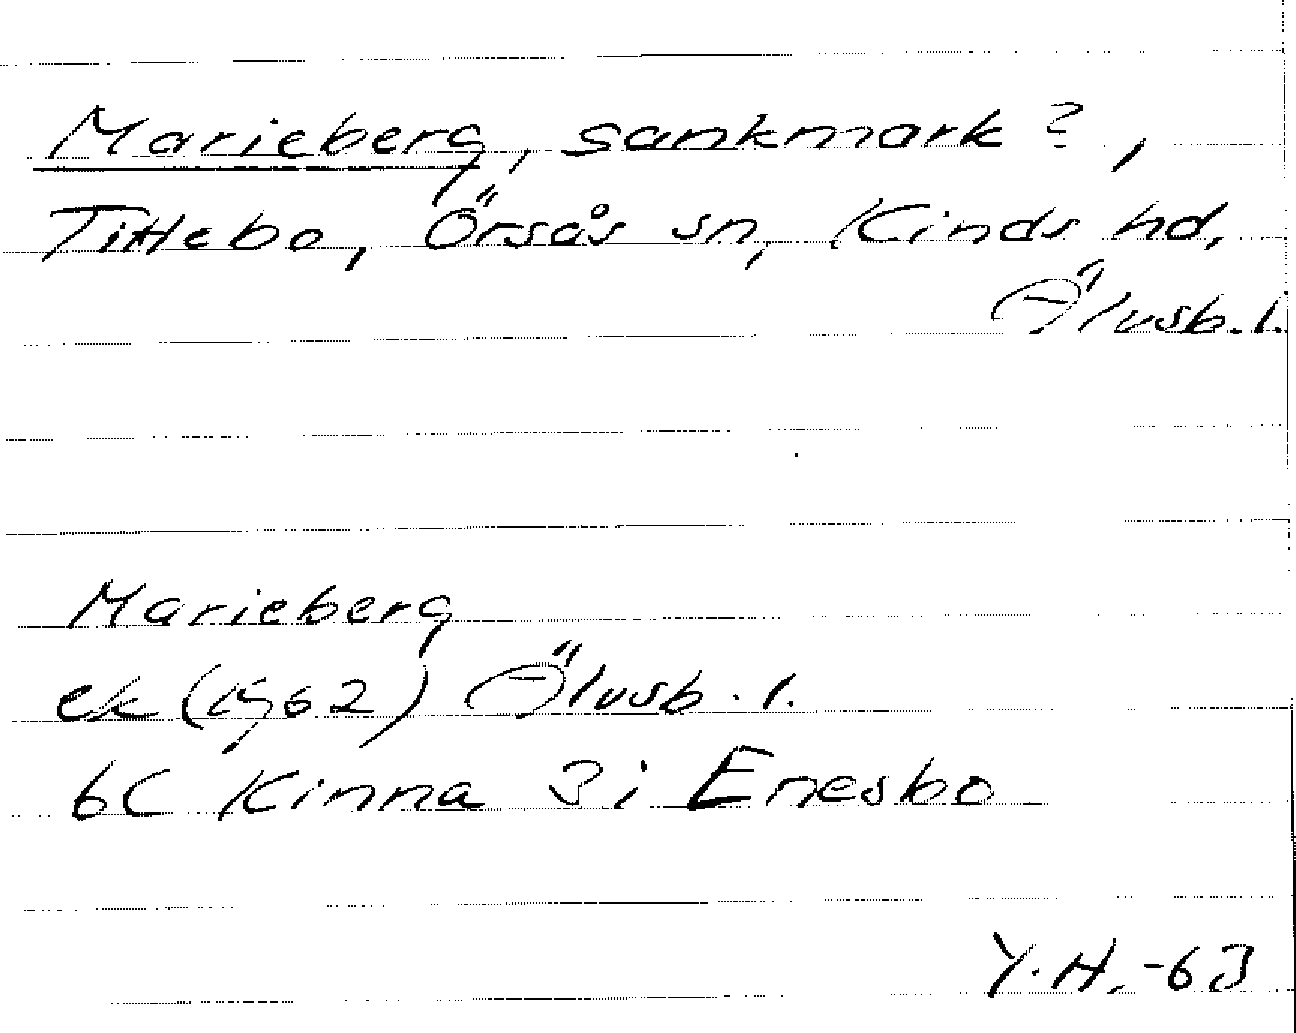 Marieberg, sankmark?,
Tittebo, Örsås sn, Kinds hd,
Älvsb. l.
Marieberg
ek (1962) Älvsb. l.
6C Kinna 3i Enesbo
Y. H. -63